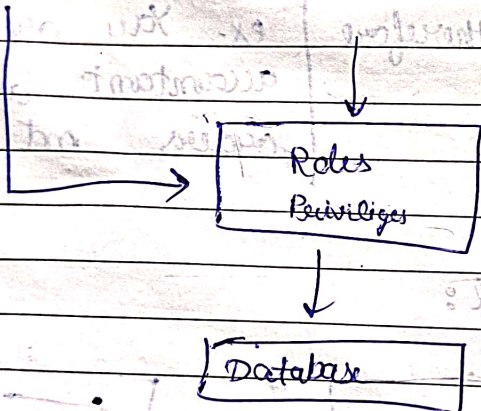 Roles
Periviliges
Database